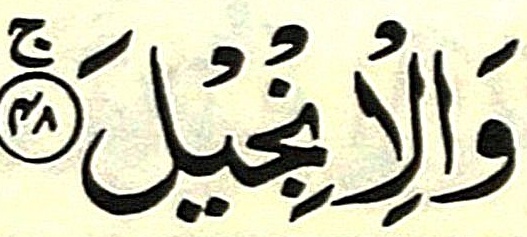 وَالْاِنْجِيْلَ ۚ ﴿۴۸﴾